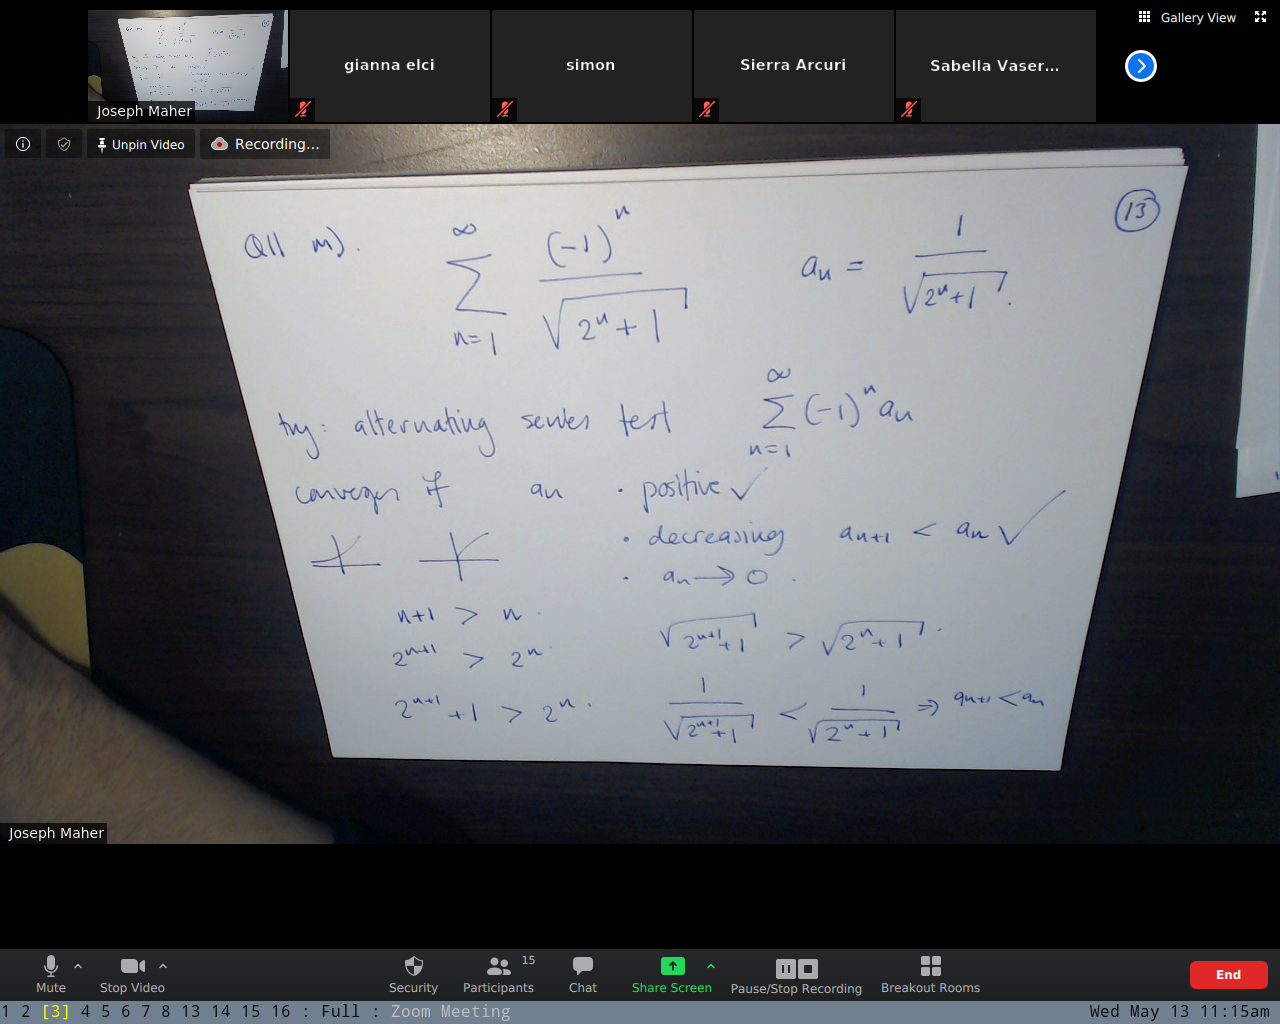 Gallery View
Joseph Maher
gianna elci
simon
Sierra Arcuri
Sabella Vaser...
Unpin Video
Recording...
13
Q11 m). ∑_{n=1}^{∞} (-1)^n / √(2^n + 1) a_n = 1 / √(2^n + 1).
try: alternating series test ∑_{n=1}^{∞} (-1)^n a_n
converges if a_n · positive ✓
· decreasing a_{n+1} < a_n ✓
· a_n → 0.
n+1 > n. √(2^{n+1} + 1) > √(2^n + 1).
2^{n+1} > 2^n.
2^{n+1} + 1 > 2^n. 1 / √(2^{n+1} + 1) < 1 / √(2^n + 1) ⇒ a_{n+1} < a_n
Joseph Maher
Mute
Stop Video
Security
Participants 15
Chat
Share Screen
Pause/Stop Recording
Breakout Rooms
End
1 2 [3] 4 5 6 7 8 13 14 15 16 : Full : Zoom Meeting
Wed May 13 11:15am